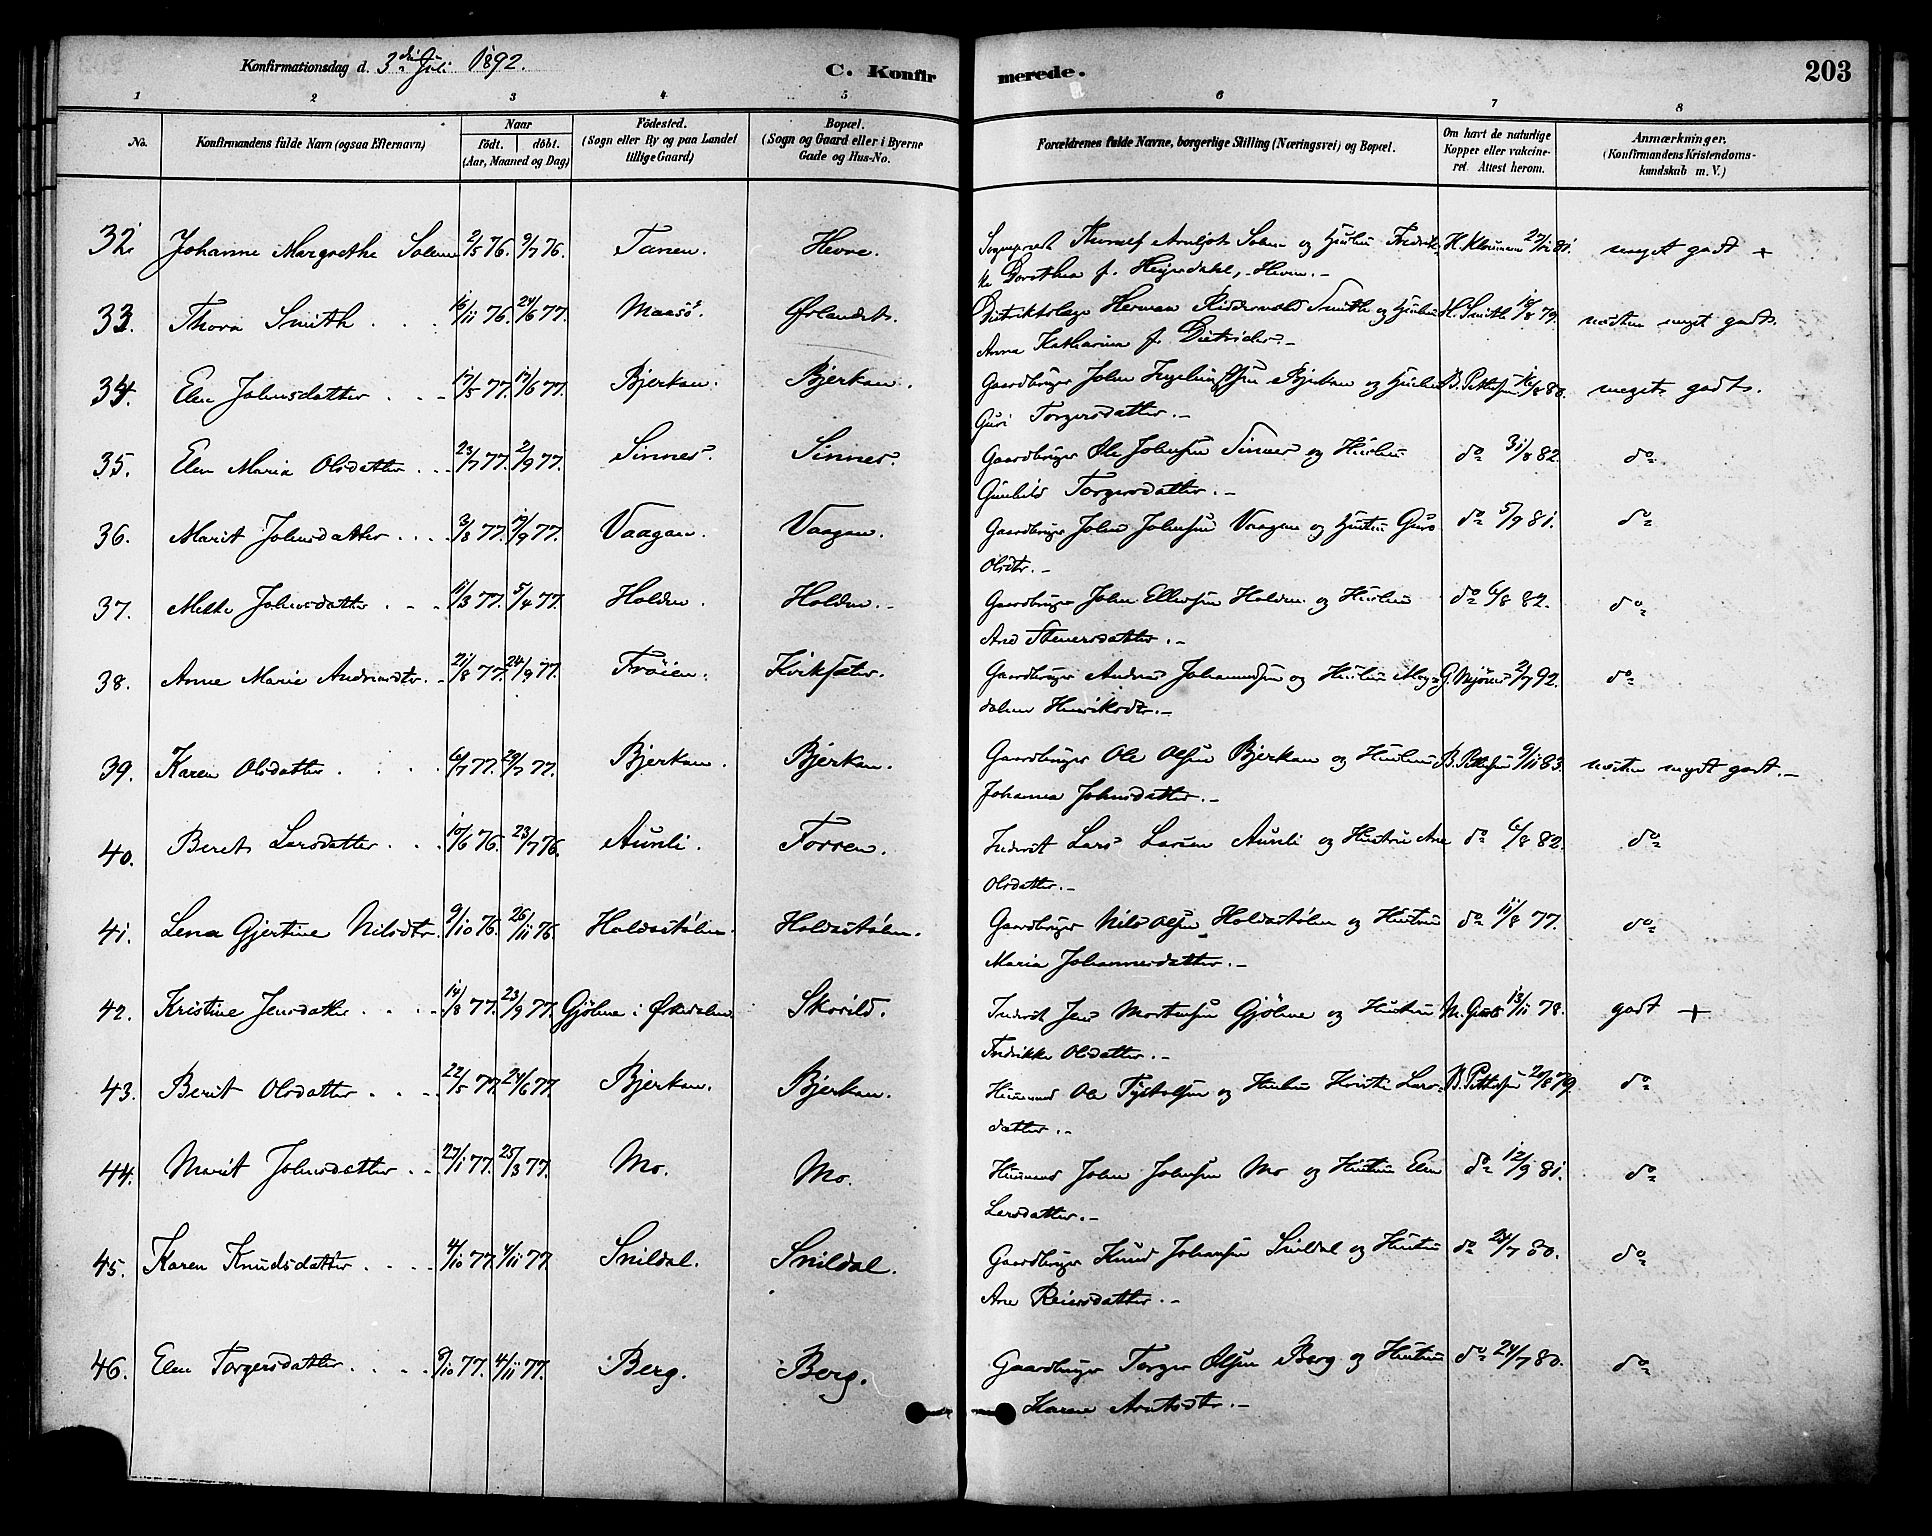 Konfirmationsdag d. 3die Juli 1892.
C. Konfirmerede.
203
1 2 3 4 5 6 7 8
No.
Konfirmandens fulde Navn (ogsaa Efternavn)
Naar
födt. döbt.
(Aar, Maaned og Dag)
Födested.
(Sogn eller By og paa Landet
tillige Gaard)
Bopæl.
(Sogn og Gaard eller i Byerne
Gade og Hus-No.
Forældrenes fulde Navne, borgerlige Stilling (Næringsvei) og Bopæl.
Om havt de naturlige
Kopper eller vakcine-
ret. Attest herom.
Anmærkninger.
(Konfirmandens Kristendoms-
kundskab m. V.)
32. Johanne Margrethe Solem 2/5 76. 9/7 76. Tanen. Hevne. Sognepræst Arnljot Solem og Hustru Fredrik-
ke Dorothea f. Heyerdahl, Hevne.- 81. meget godt +
33. Thora Smith 16/11 76. 24/6 77. Maasö. Ørlandet. Distriktslæge Herman Smith og Hustru
Anna Katharina f. Dietrichs.- H. Smith 18/8 79. næsten meget godt.
34. Elen Johnsdatter 17/5 77. 17/6 77. Bjerkan. Bjerkan. Gaardbruger John Bjerkan og Hustru
Guri Torgersdatter.- B. Pettersen 16/8 80. meget godt.
35. Elen Maria Olsdatter 23/7 77. 2/9 77. Sinnes. Sinnes. Gaardbruger Ole Johnsen Sinnes og Hustru
Gunhild Torgersdatter.- do 31/8 82. do
36. Marit Johnsdatter 3/8 77. 19/9 77. Vaagan. Vaagan. Gaardbruger John Johnsen Vaagan og Hustru Guro
Olsdtr.- do 5/9 81. do
37. Mette Johnsdatter 11/3 77. 5/4 77. Holden. Holden. Gaardbruger John Ellevsen Holden og Hustru
Ane Stenersdatter.- do 6/8 82. do
38. Anne Marie Andreasdtr. 21/8 77. 24/9 77. Fröien. Kirksæter. Gaardbruger Andreas Johannessen og Hustru Mag-
dalena Henriksdtr.- G. Mjönes 2/7 92. do
39. Karen Olsdatter 6/7 77. 29/7 77. Bjerkan. Bjerkan. Gaardbruger Ole Olsen Bjerkan og Hustru
Johanna Johnsdatter.- B. Pettersen 9/11 83. næsten meget godt.-
40. Berit Larsdatter 10/6 76. 23/7 76. Aunli. Torren. Inderst Lars Larsen Aunli og Hustru Ane
Olsdatter.- do 6/8 82. do
41. Lena Gjertine Nilsdtr. 9/10 76. 26/11 76. Holdastölen. Holdastölen. Gaardbruger Nils Olsen Holdastölen og Hustru
Maria Johannesdatter.- do 11/8 77. do
42. Kristine Jensdatter 14/8 77. 23/9 77. Gjölme i Ørkedalen. Skorild. Inderst Jens Mortensen Gjölme og Hustru
Fredrikke Olsdatter.- 13/11 78. godt +
43. Berit Olsdatter 22/5 77. 24/6 77. Bjerkan. Bjerkan. Husmand Ole og Hustru Kirsti Lars-
datter.- B. Pettersen 20/8 79. do
44. Marit Johnsdatter 27/1 77. 25/3 77. Mo. Mo. Husmand John Johnsen Mo og Hustru Elen
Larsdatter.- do 12/9 81. do
45. Karen Knudsdatter 4/10 77. 4/11 77. Snildal. Snildal. Gaardbruger Knud Johansen Snildal og Hustru
Ane Reiersdatter.- do 24/7 80. do
46. Elen Torgersdatter 9/10 77. 4/11 77. Berg. Berg. Gaardbruger Torger Olsen Berg og Hustru
Karen Arntsdtr.- do 24/7 80. do